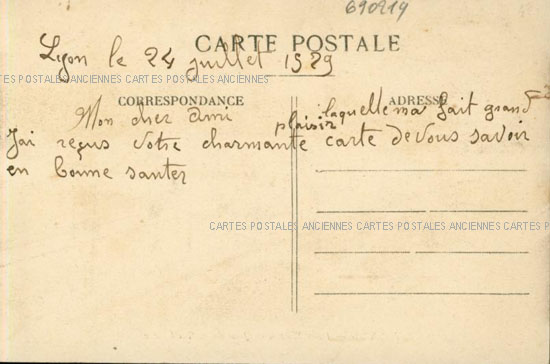 690219
CARTE POSTALE
Lyon le 24 juillet 1929
CARTES POSTALES ANCIENNES CARTES POSTALES ANCIENNES
CORRESPONDANCE
ADRESSE
Mon cher ami
plaisir laquelle ma fait grand
J'ai reçus votre charmante carte de vous savoir
en bonne santer
CARTES POSTALES ANCIENNES CARTES POSTALES ANCIENNES CARTES P